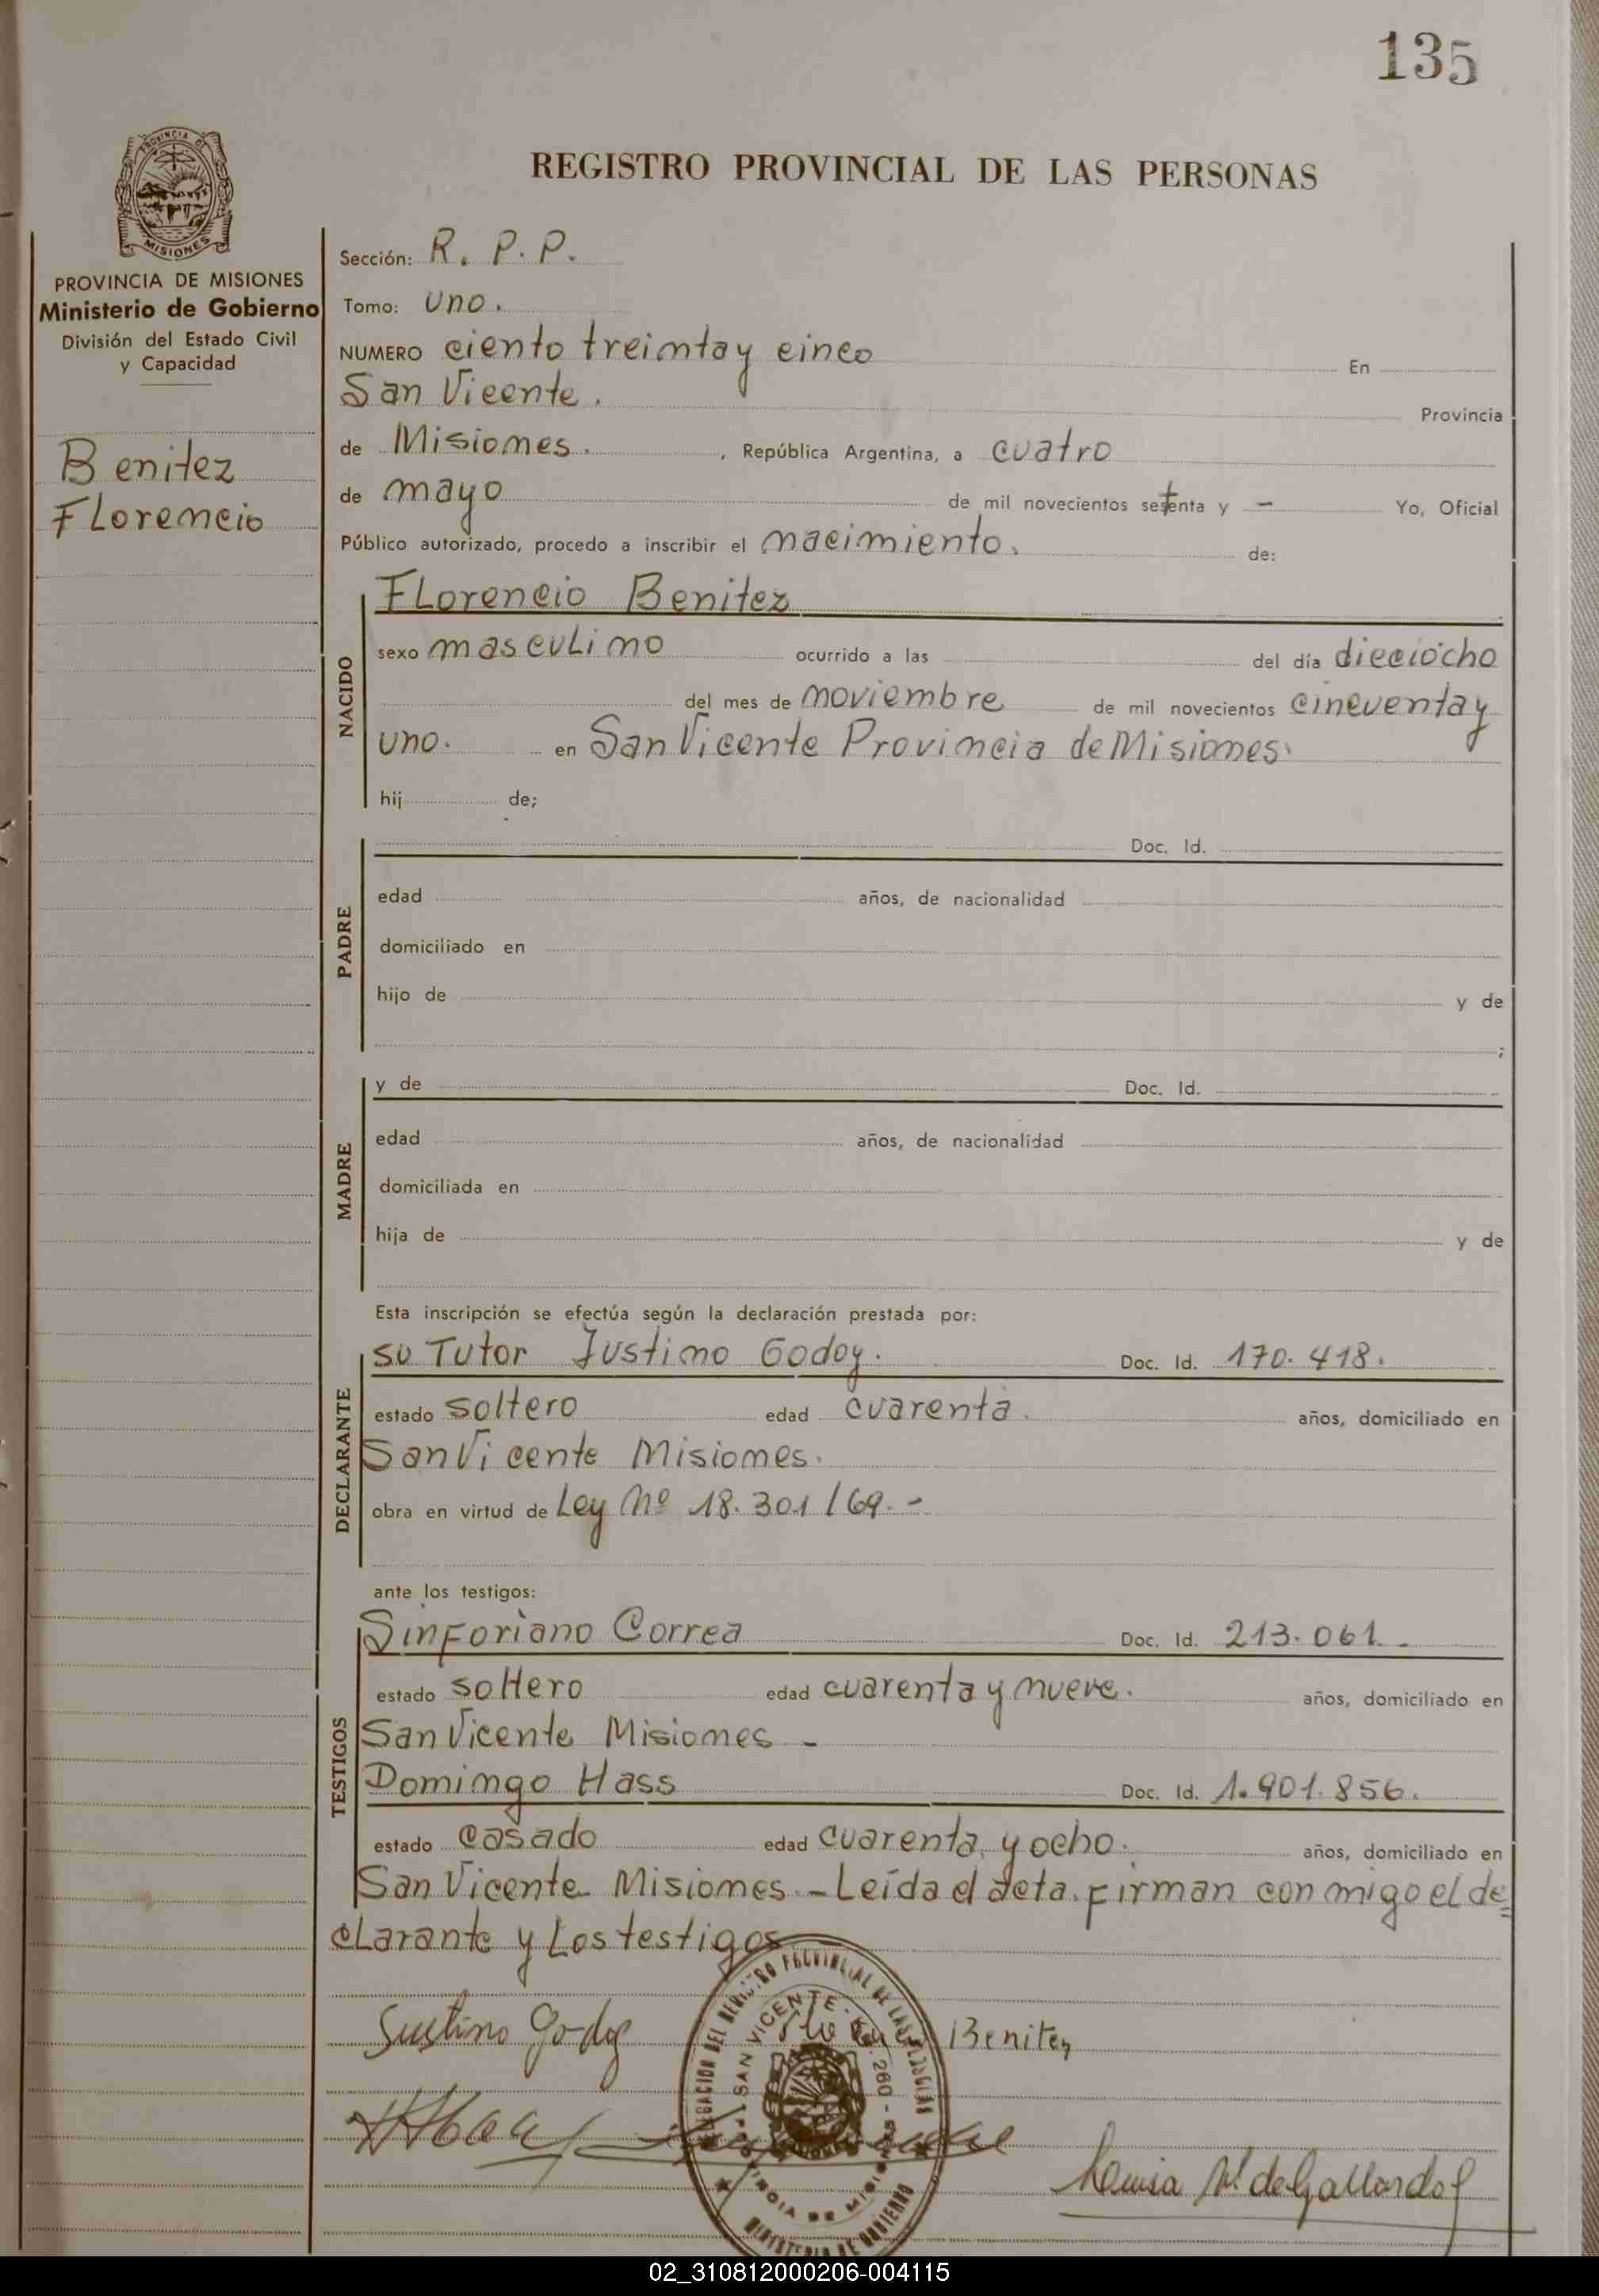 135
REGISTRO PROVINCIAL DE LAS PERSONAS
PROVINCIA DE
MISIONES
PROVINCIA DE MISIONES
Ministerio de Gobierno
División del Estado Civil
y Capacidad
Benitez
Florencio
Sección: R. P. P.
Tomo: uno.
NUMERO ciento treinta y cinco En
San Vicente. Provincia
de Misiones. , República Argentina, a cuatro
de mayo de mil novecientos setenta y - Yo, Oficial
Público autorizado, procedo a inscribir el nacimiento. de:
NACIDO
Florencio Benitez
sexo masculino ocurrido a las del día dieciocho
del mes de noviembre de mil novecientos cincuenta y
uno. en San Vicente Provincia de Misiones.
hij de;
PADRE
Doc. Id.
edad años, de nacionalidad
domiciliado en
hijo de y de
;
MADRE
y de Doc. Id.
edad años, de nacionalidad
domiciliada en
hija de y de
Esta inscripción se efectúa según la declaración prestada por:
DECLARANTE
su Tutor Justino Godoy. Doc. Id. 170.418.
estado soltero edad cuarenta. años, domiciliado en
San Vicente Misiones.
obra en virtud de Ley Nº 18.301/69.-
ante los testigos:
TESTIGOS
Sinforiano Correa Doc. Id. 213.061.-
estado soltero edad cuarenta y nueve. años, domiciliado en
San Vicente Misiones -
Domingo Hass Doc. Id. 1.901.856.
estado casado edad cuarenta y ocho. años, domiciliado en
San Vicente Misiones.-Leída el acta. firman conmigo el de=
clarante y Los testigos
Justino Godoy Benitez
DELEGACION DEL REGISTRO PROVINCIAL DE LAS PERSONAS
SAN VICENTE
260
PROVINCIA DE MISIONES
MINISTERIO DE GOBIERNO
Luisa N. de Gallardo
02_310812000206-004115